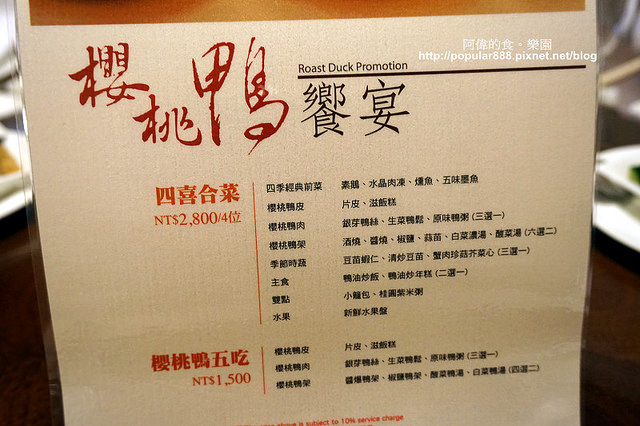 阿偉的食‧樂園
http://popular888.pixnet.net/blog
櫻桃鴨
Roast Duck Promotion
饗宴
四喜合菜
NT$2,800/4位
四季經典前菜 素鵝、水晶肉凍、燻魚、五味墨魚
櫻桃鴨皮 片皮、滋飯糕
櫻桃鴨肉 銀芽鴨絲、生菜鴨鬆、原味鴨粥(三選一)
櫻桃鴨架 酒燒、醬燒、椒鹽、蒜苗、白菜濃湯、酸菜湯(六選二)
季節時蔬 豆苗蝦仁、清炒豆苗、蟹肉珍菇芥菜心(三選一)
主食 鴨油炒飯、鴨油炒年糕(二選一)
雙點 小籠包、桂圓紫米粥
水果 新鮮水果盤
櫻桃鴨五吃
NT$1,500
櫻桃鴨皮 片皮、滋飯糕
櫻桃鴨肉 銀芽鴨絲、生菜鴨鬆、原味鴨粥(三選一)
櫻桃鴨架 醬爆鴨架、椒鹽鴨架、酸菜鴨湯、白菜鴨湯(四選二)
above is subject to 10% service charge